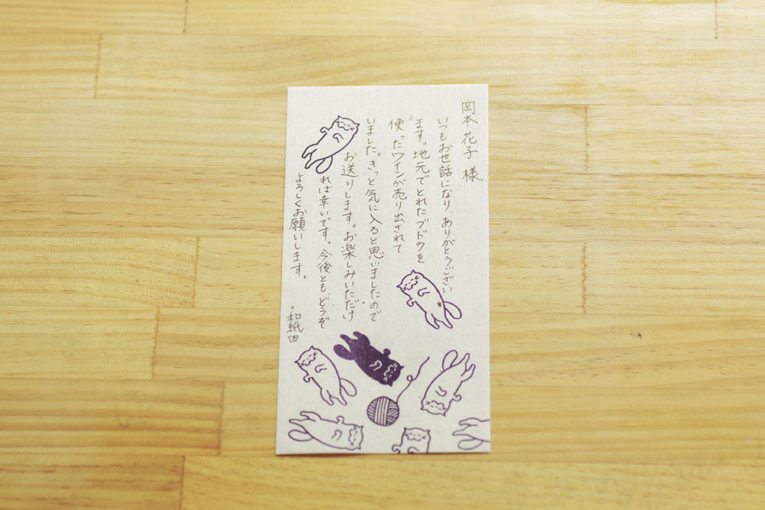 岡本 花子 様
いつもお世話になり、ありがとうござい
ます。地元でとれたブドウを
使ったワインが売り出されて
いました。きっと気に入ると思いましたので
お送りします。お楽しみいただけ
れば幸いです。今後とも、どうぞ
よろしくお願いします。
和紙田